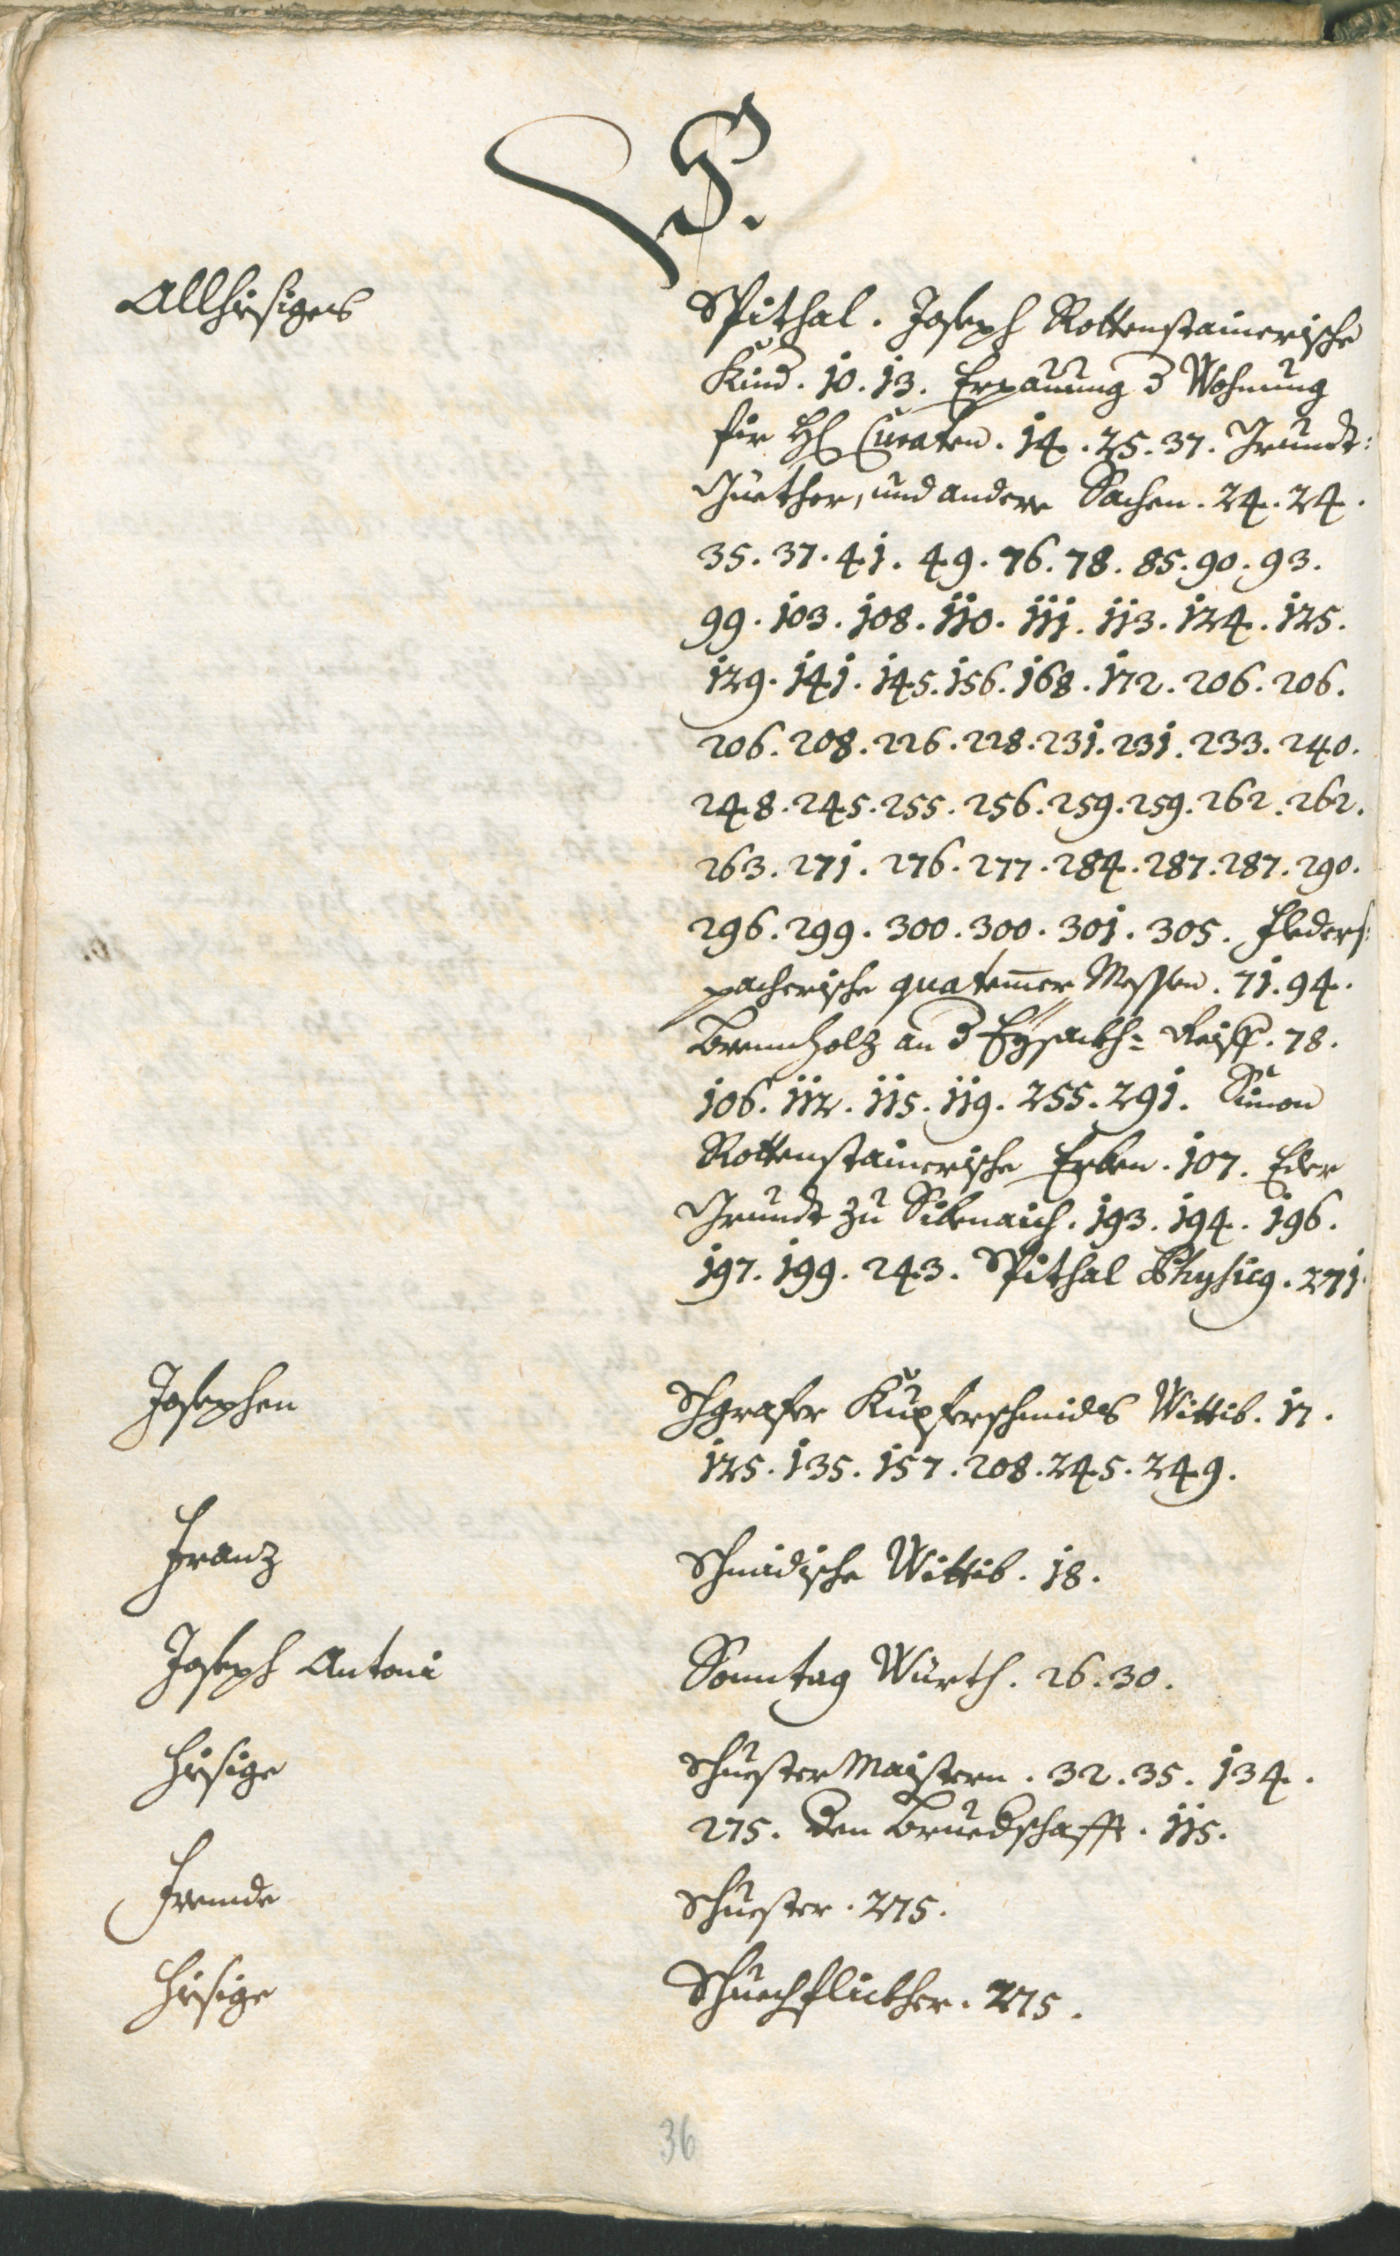 S.
Allhisiges Spithal. Joseph Rottenstainerische
Kind. 10. 13. Erpauung d Wohnung
für H Curaten. 14. 25. 37. Grundt:
Güether, und andere Sachen. 24. 24.
35. 37. 41. 49. 76. 78. 85. 90. 93.
99. 103. 108. 110. 111. 113. 124. 125.
129. 141. 145. 156. 168. 172. 206. 206.
206. 208. 226. 228. 231. 231. 233. 240.
248. 245. 255. 256. 259. 259. 262. 262.
263. 271. 276. 277. 284. 287. 287. 290.
296. 299. 300. 300. 301. 305. Flederſ:
pacherische quatemer Messen. 71. 94.
Brennholz an d Eysackh: Reiff. 78.
106. 112. 115. 119. 255. 291. Simon
Rottenstainerische Erben. 107. Eder
Grundt zu Sibenaich. 193. 194. 196.
197. 199. 243. Spithal Physicg. 271.
Josephen Schgrafer Kupferschmids Wittib. 17.
125. 135. 157. 208. 245. 249.
Franz Schmidische Wittib. 18.
Joseph Antoni Sonntag Würth. 26. 30.
Hisige Schuester Maistern. 32. 35. 134.
275. den Bruedschafft. 115.
Fremde Schuester. 275.
Hisige Schuechflickher. 275.
36